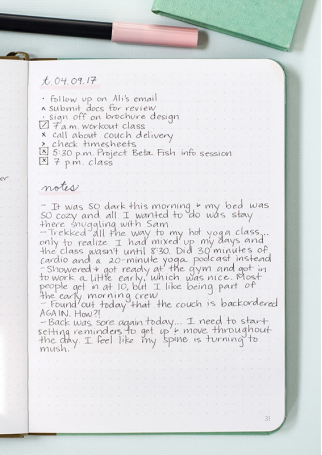 t 04.09.17
· follow up on Ali's email
^ submit docs for review
· sign off on brochure design
7 a.m. workout class
x call about couch delivery
> check timesheets
x 5:30 p.m. Project Beta Fish info session
x 7 p.m. class
notes
- It was SO dark this morning + my bed was
SO cozy and all I wanted to do was stay
there snuggling with Sam.
- Trekked all the way to my hot yoga class...
only to realize I had mixed up my days and
the class wasn't until 8:30. Did 30 minutes of
cardio and a 20-minute yoga podcast instead
- Showered + got ready at the gym and got in
to work a little early, which was nice. Most
people get in at 10, but I like being part of
the early morning crew
- Found out today that the couch is backordered
AGAIN. How?!
- Back was sore again today... I need to start
setting reminders to get up + move throughout
the day. I feel like my spine is turning to
mush.
31